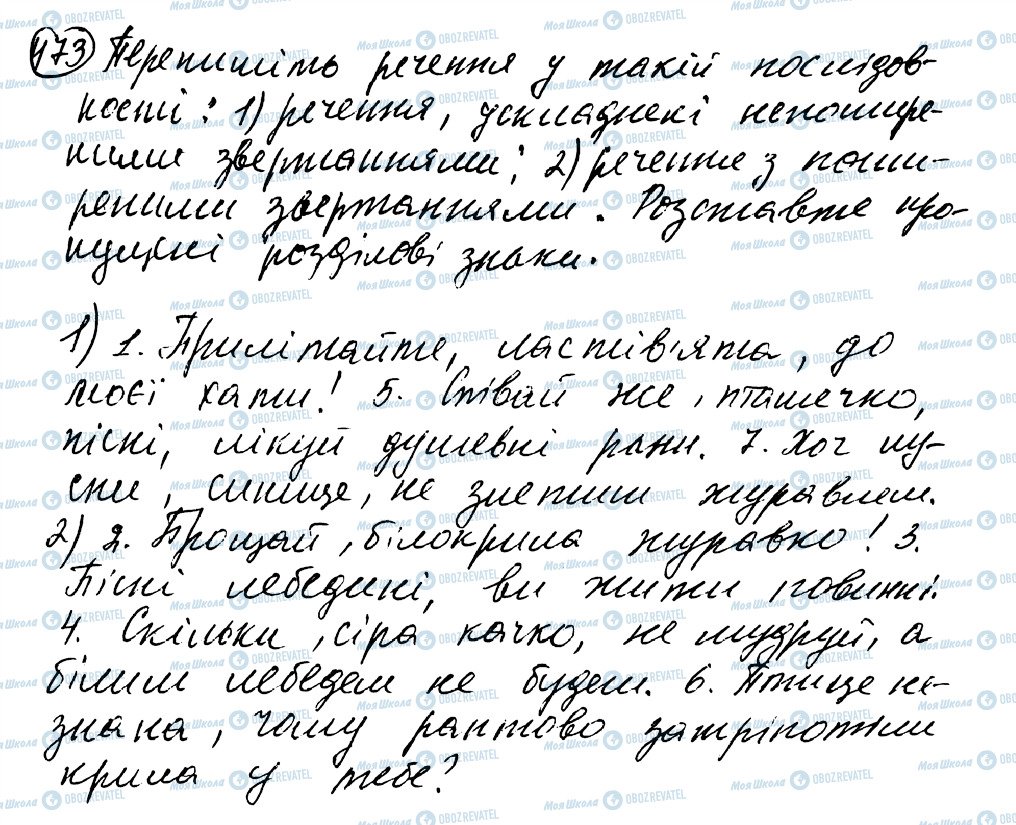 473 Перепишіть речення у такій послідов-
ності: 1) речення, ускладнені непошире-
ними звертаннями; 2) речення з поши-
реними звертаннями. Розставте про-
пущені розділові знаки.
1) 1. Прилітайте, ластів'ята, до
моєї хати! 5. Співай же, пташечко,
пісні, лікуй душевні рани. 7. Хоч лу-
сни, синице, не злетиш журавлем.
2) 2. Прощай, білокрила журавко! 3.
Пісні лебедині, ви жити повинні.
4. Скільки, сіра качко, не мудруй, а
білим лебедем не будеш. 6. Птице не-
знана, чому раптово затріпотіли
крила у тебе?
Моя Школа OBOZREVATEL